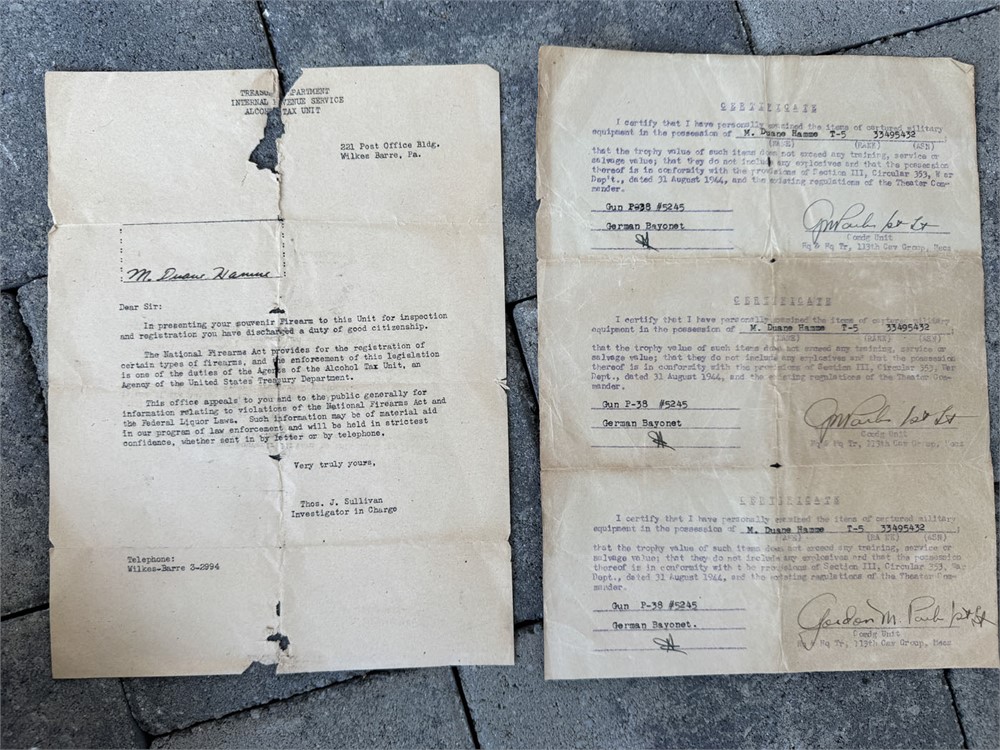 TREASU EPARTMENT
INTERNAL VENUE SERVICE
ALCOHO TAX UNIT
221 Post Office Bldg.
Wilkes Barre, Pa.
M. Duane Hamme
Dear Sir:
In presenting your souvenir Firearm to this Unit for inspection
and registration you have discharged a duty of good citizenship.
The National Firearms Act provides for the registration of
certain types of firearms, and the enforcement of this legislation
is one of the duties of the Agents of the Alcohol Tax Unit, an
Agency of the United States Treasury Department.
This office appeals to you and to the public generally for
information relating to violations of the National Firearms Act and
the Federal Liquor Laws. Such information may be of material aid
in our program of law enforcement and will be held in strictest
confidence, whether sent in by letter or by telephone.
Very truly yours,
Thos. J. Sullivan
Investigator in Charge
Telephone:
Wilkes-Barre 3-2994
CERTIFICATE
I certify that I have personally examined the items of captured military
equipment in the possession of M. Duane Hamme T-5 33495432
(NAME) (RANK) (ASN)
that the trophy value of such items does not exceed any training, service or
salvage value; that they do not include any explosives and that the possession
thereof is in conformity with the provisions of Section III, Circular 353, War
Dep't., dated 31 August 1944, and the existing regulations of the Theater Com-
mander.
Gun P-38 #5245
German Bayonet
GM Park 1st Lt
Comdg Unit
Hq & Hq Tr, 119th Cav Group, Mecz
CERTIFICATE
I certify that I have personally examined the items of captured military
equipment in the possession of M. Duane Hamme T-5 33495432
(NAME) (RANK) (ASN)
that the trophy value of such items does not exceed any training, service or
salvage value; that they do not include any explosives and that the possession
thereof is in conformity with the provisions of Section III, Circular 353, War
Dept., dated 31 August 1944, and the existing regulations of the Theater Com-
mander.
Gun P-38 #5245
German Bayonet
GM Park 1st Lt
Comdg Unit
Hq & Hq Tr, Cav Group, Mecz
CERTIFICATE
I certify that I have personally examined the items of captured military
equipment in the possession of M. Duane Hamme T-5 33495432
(NAME) (RANK) (ASN)
that the trophy value of such items does not exceed any training, service or
salvage value; that they do not include any explosives and that the possession
thereof is in conformity with the provisions of Section III, Circular 353, War
Dept., dated 31 August 1944, and the existing regulations of the Theater Com-
mander.
Gun P-38 #5245
German Bayonet.
Gordon M. Park 1st Lt
Comdg Unit
Hq & Hq Tr, 119th Cav Group, Mecz